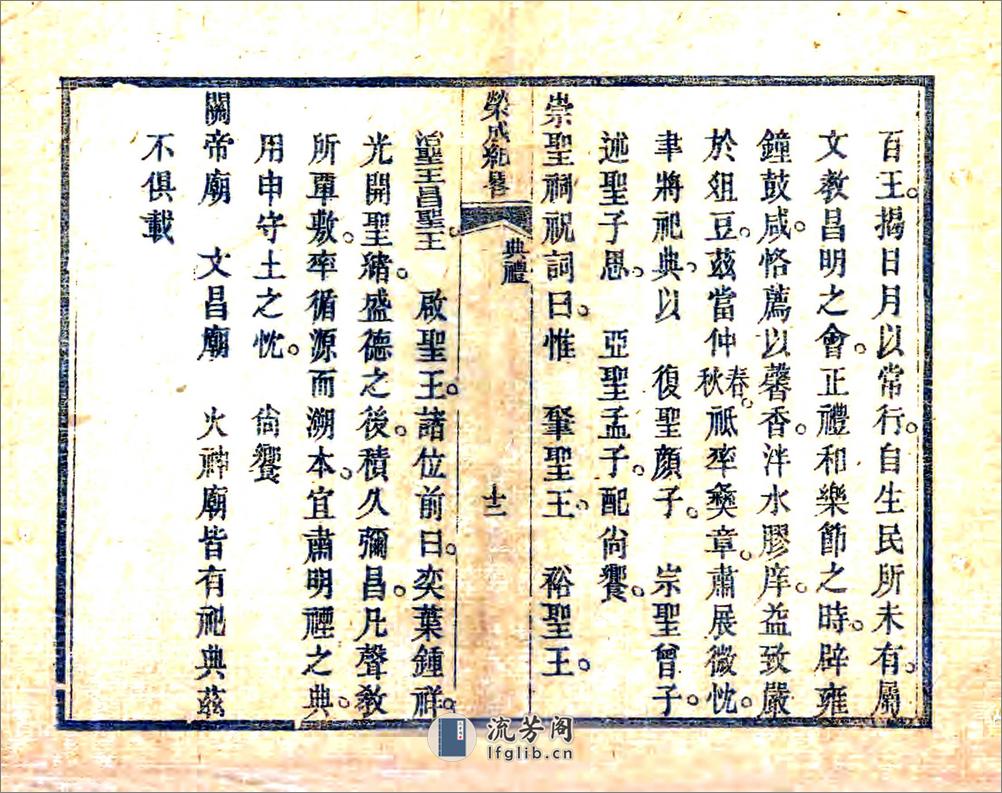 百王。揭日月以常行。自生民所未有。屬
文教昌明之會。正禮和樂節之時。辟雍
鐘鼓。咸恪薦以馨香。泮水膠庠。益致嚴
於俎豆。茲當仲春秋。祗率彝章。肅展微忱。
聿將祀典。以 復聖顏子。 宗聖曾子。
述聖子思。 亞聖孟子。配尙饗。
崇聖祠祝詞曰。惟 肇聖王。 裕聖王。
榮成紀畧
典禮
十二
詒聖王昌聖王。 啟聖王。諸位前曰。奕葉鍾祥。
光開聖緒。盛德之後。積久彌昌。凡聲敎
所覃敷。率循源而溯本。宜肅明禋之典。
用申守土之忱。 尙饗
關帝廟 文昌廟 火神廟皆有祀典茲
不俱載
流芳阁
lfglib.cn